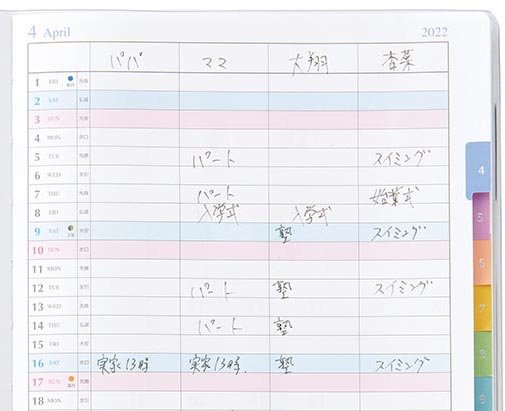 4 April 2022
パパ ママ 大翔 杏菜
1 FRI 先負
2 SAT 仏滅
3 SUN 大安
4 MON 赤口
5 TUE 先勝 パート スイミング
6 WED 友引
7 THU 先負 パート 始業式
8 FRI 仏滅 入学式 入学式
9 SAT 大安 塾 スイミング
10 SUN 赤口
11 MON 先勝
12 TUE 友引 パート 塾 スイミング
13 WED 先負
14 THU 仏滅 パート 塾
15 FRI 大安
16 SAT 赤口 実家13時 実家13時. 塾 スイミング
17 SUN 先勝
18 MON 友引
4
5
6
7
8
9